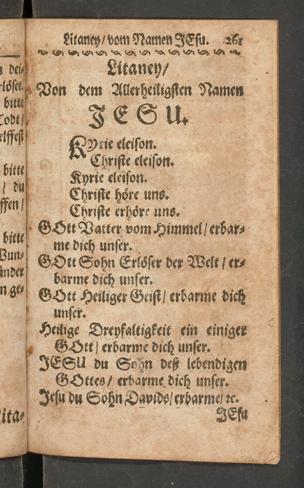 Litaney/ vom Namen JEsu. 261
Litaney/
Von dem Allerheiligsten Namen
JESU.
Kyrie eleison.
Christe eleison.
Kyrie eleison.
Christe höre uns.
Christe erhöre uns.
GOtt Vatter vom Himmel/ erbar-
me dich unser.
GOtt Sohn Erlöser der Welt/ er-
barme dich unser.
GOtt Heiliger Geist/ erbarme dich
unser.
Heilige Dreyfaltigkeit ein einiger
GOtt/ erbarme dich unser.
JESU du Sohn deß lebendigen
GOttes/ erbarme dich unser.
Jesu du Sohn Davids/ erbarme/ ꝛc.
JEsu
bitte
bitte
/ du
bitte
Lita-